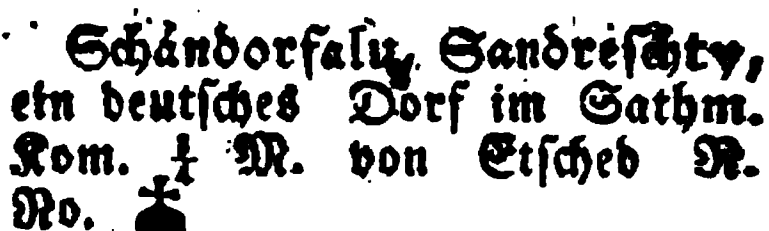 Schándorfalu, Sandreschty,
ein deutsches Dorf im Sathm.
Kom. ¼ M. von Etsched N.
No.